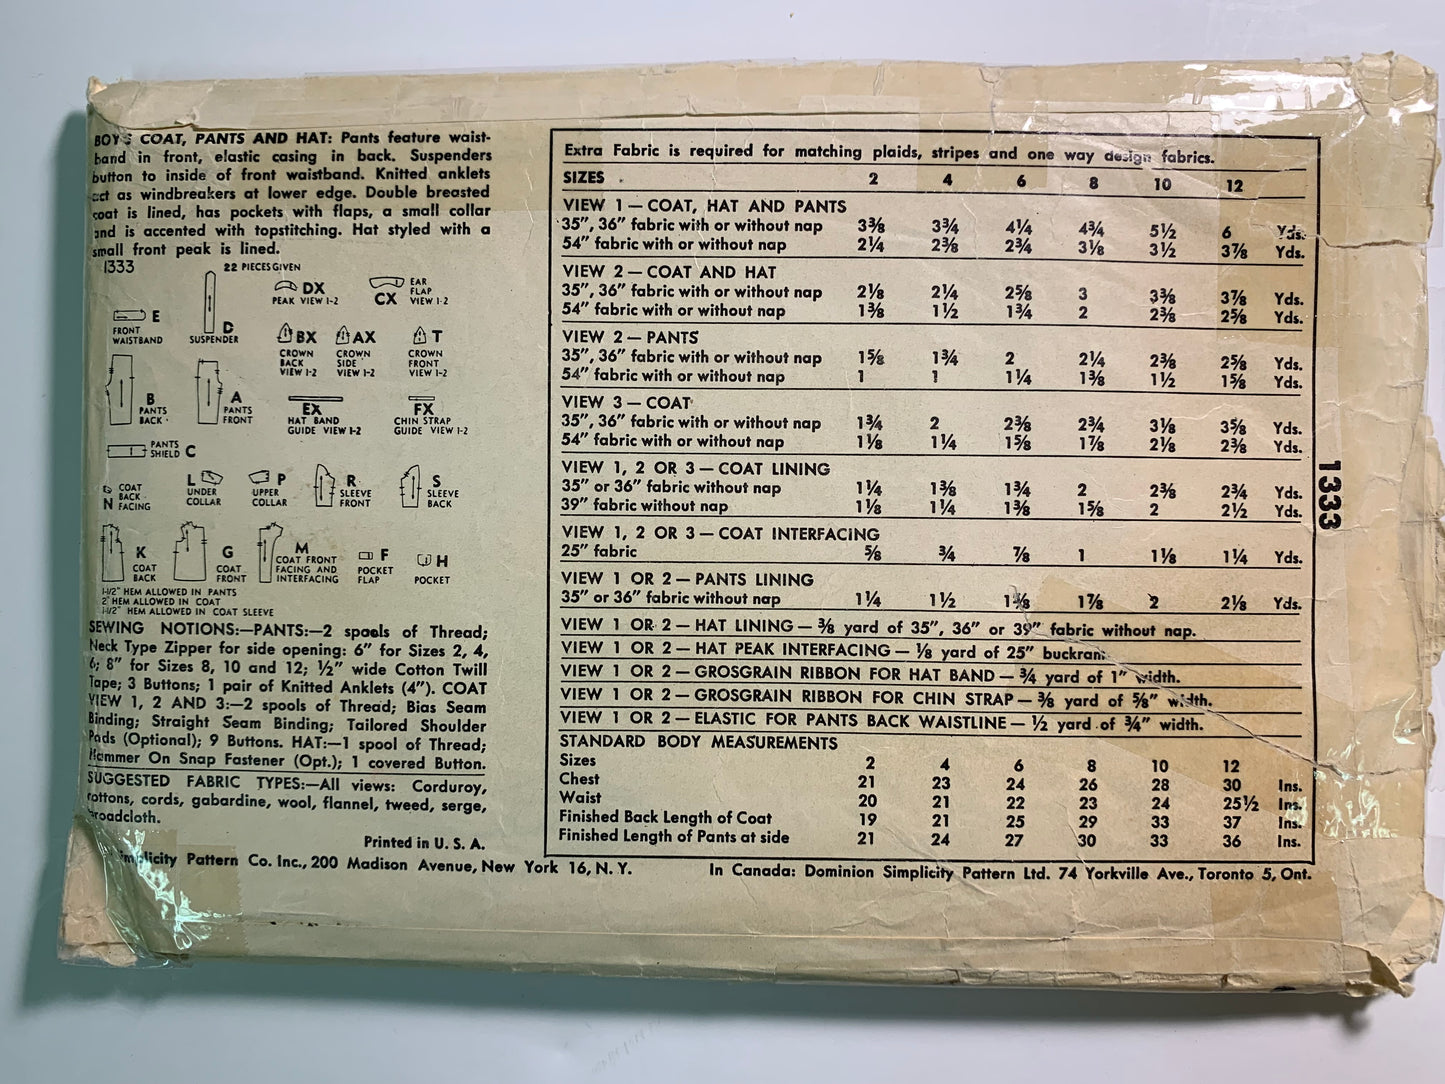 BOY'S COAT, PANTS AND HAT: Pants feature waist-
band in front, elastic casing in back. Suspenders
button to inside of front waistband. Knitted anklets
act as windbreakers at lower edge. Double breasted
coat is lined, has pockets with flaps, a small collar
and is accented with topstitching. Hat styled with a
small front peak is lined.
1333 22 PIECES GIVEN
E
FRONT
WAISTBAND
D
SUSPENDER
DX
PEAK VIEW 1-2
CX
EAR
FLAP
VIEW 1-2
BX
CROWN
BACK
VIEW 1-2
AX
CROWN
SIDE
VIEW 1-2
T
CROWN
FRONT
VIEW 1-2
B
PANTS
BACK
A
PANTS
FRONT
EX
HAT BAND
GUIDE VIEW 1-2
FX
CHIN STRAP
GUIDE VIEW 1-2
PANTS
SHIELD C
COAT
BACK
N FACING
L
UNDER
COLLAR
P
UPPER
COLLAR
R
SLEEVE
FRONT
S
SLEEVE
BACK
K
COAT
BACK
G
COAT
FRONT
M
COAT FRONT
FACING AND
INTERFACING
F
POCKET
FLAP
H
POCKET
1-1/2" HEM ALLOWED IN PANTS
2" HEM ALLOWED IN COAT
1-1/2" HEM ALLOWED IN COAT SLEEVE
SEWING NOTIONS:—PANTS:—2 spools of Thread;
Neck Type Zipper for side opening: 6" for Sizes 2, 4,
6; 8" for Sizes 8, 10 and 12; ½" wide Cotton Twill
Tape; 3 Buttons; 1 pair of Knitted Anklets (4"). COAT
VIEW 1, 2 AND 3:—2 spools of Thread; Bias Seam
Binding; Straight Seam Binding; Tailored Shoulder
Pads (Optional); 9 Buttons. HAT:—1 spool of Thread;
Hammer On Snap Fastener (Opt.); 1 covered Button.
SUGGESTED FABRIC TYPES:—All views: Corduroy,
cottons, cords, gabardine, wool, flannel, tweed, serge,
broadcloth.
Printed in U. S. A.
Extra Fabric is required for matching plaids, stripes and one way design fabrics.
SIZES 2 4 6 8 10 12
VIEW 1—COAT, HAT AND PANTS
35", 36" fabric with or without nap 3⅜ 3¾ 4¼ 4¾ 5½ 6 Yds.
54" fabric with or without nap 2¼ 2⅜ 2¾ 3⅛ 3½ 3⅞ Yds.
VIEW 2—COAT AND HAT
35", 36" fabric with or without nap 2⅛ 2¼ 2⅝ 3 3⅜ 3⅞ Yds.
54" fabric with or without nap 1⅜ 1½ 1¾ 2 2⅜ 2⅝ Yds.
VIEW 2—PANTS
35", 36" fabric with or without nap 1⅝ 1¾ 2 2¼ 2⅜ 2⅝ Yds.
54" fabric with or without nap 1 1 1¼ 1⅜ 1½ 1⅝ Yds.
VIEW 3—COAT
35", 36" fabric with or without nap 1¾ 2 2⅜ 2¾ 3⅛ 3⅝ Yds.
54" fabric with or without nap 1⅛ 1¼ 1⅝ 1⅞ 2⅛ 2⅜ Yds.
VIEW 1, 2 OR 3—COAT LINING
35" or 36" fabric without nap 1¼ 1⅜ 1¾ 2 2⅜ 2¾ Yds.
39" fabric without nap 1⅛ 1¼ 1⅜ 1⅝ 2 2½ Yds.
VIEW 1, 2 OR 3—COAT INTERFACING
25" fabric ⅝ ¾ ⅞ 1 1⅛ 1¼ Yds.
VIEW 1 OR 2—PANTS LINING
35" or 36" fabric without nap 1¼ 1½ 1⅝ 1⅞ 2 2⅛ Yds.
VIEW 1 OR 2—HAT LINING—⅜ yard of 35", 36" or 39" fabric without nap.
VIEW 1 OR 2—HAT PEAK INTERFACING—⅛ yard of 25" buckram.
VIEW 1 OR 2—GROSGRAIN RIBBON FOR HAT BAND—¾ yard of 1" width.
VIEW 1 OR 2—GROSGRAIN RIBBON FOR CHIN STRAP—⅜ yard of ⅝" width.
VIEW 1 OR 2—ELASTIC FOR PANTS BACK WAISTLINE—½ yard of ¾" width.
STANDARD BODY MEASUREMENTS
Sizes 2 4 6 8 10 12
Chest 21 23 24 26 28 30 Ins.
Waist 20 21 22 23 24 25½ Ins.
Finished Back Length of Coat 19 21 25 29 33 37 Ins.
Finished Length of Pants at side 21 24 27 30 33 36 Ins.
1333
Simplicity Pattern Co. Inc., 200 Madison Avenue, New York 16, N. Y. In Canada: Dominion Simplicity Pattern Ltd. 74 Yorkville Ave., Toronto 5, Ont.